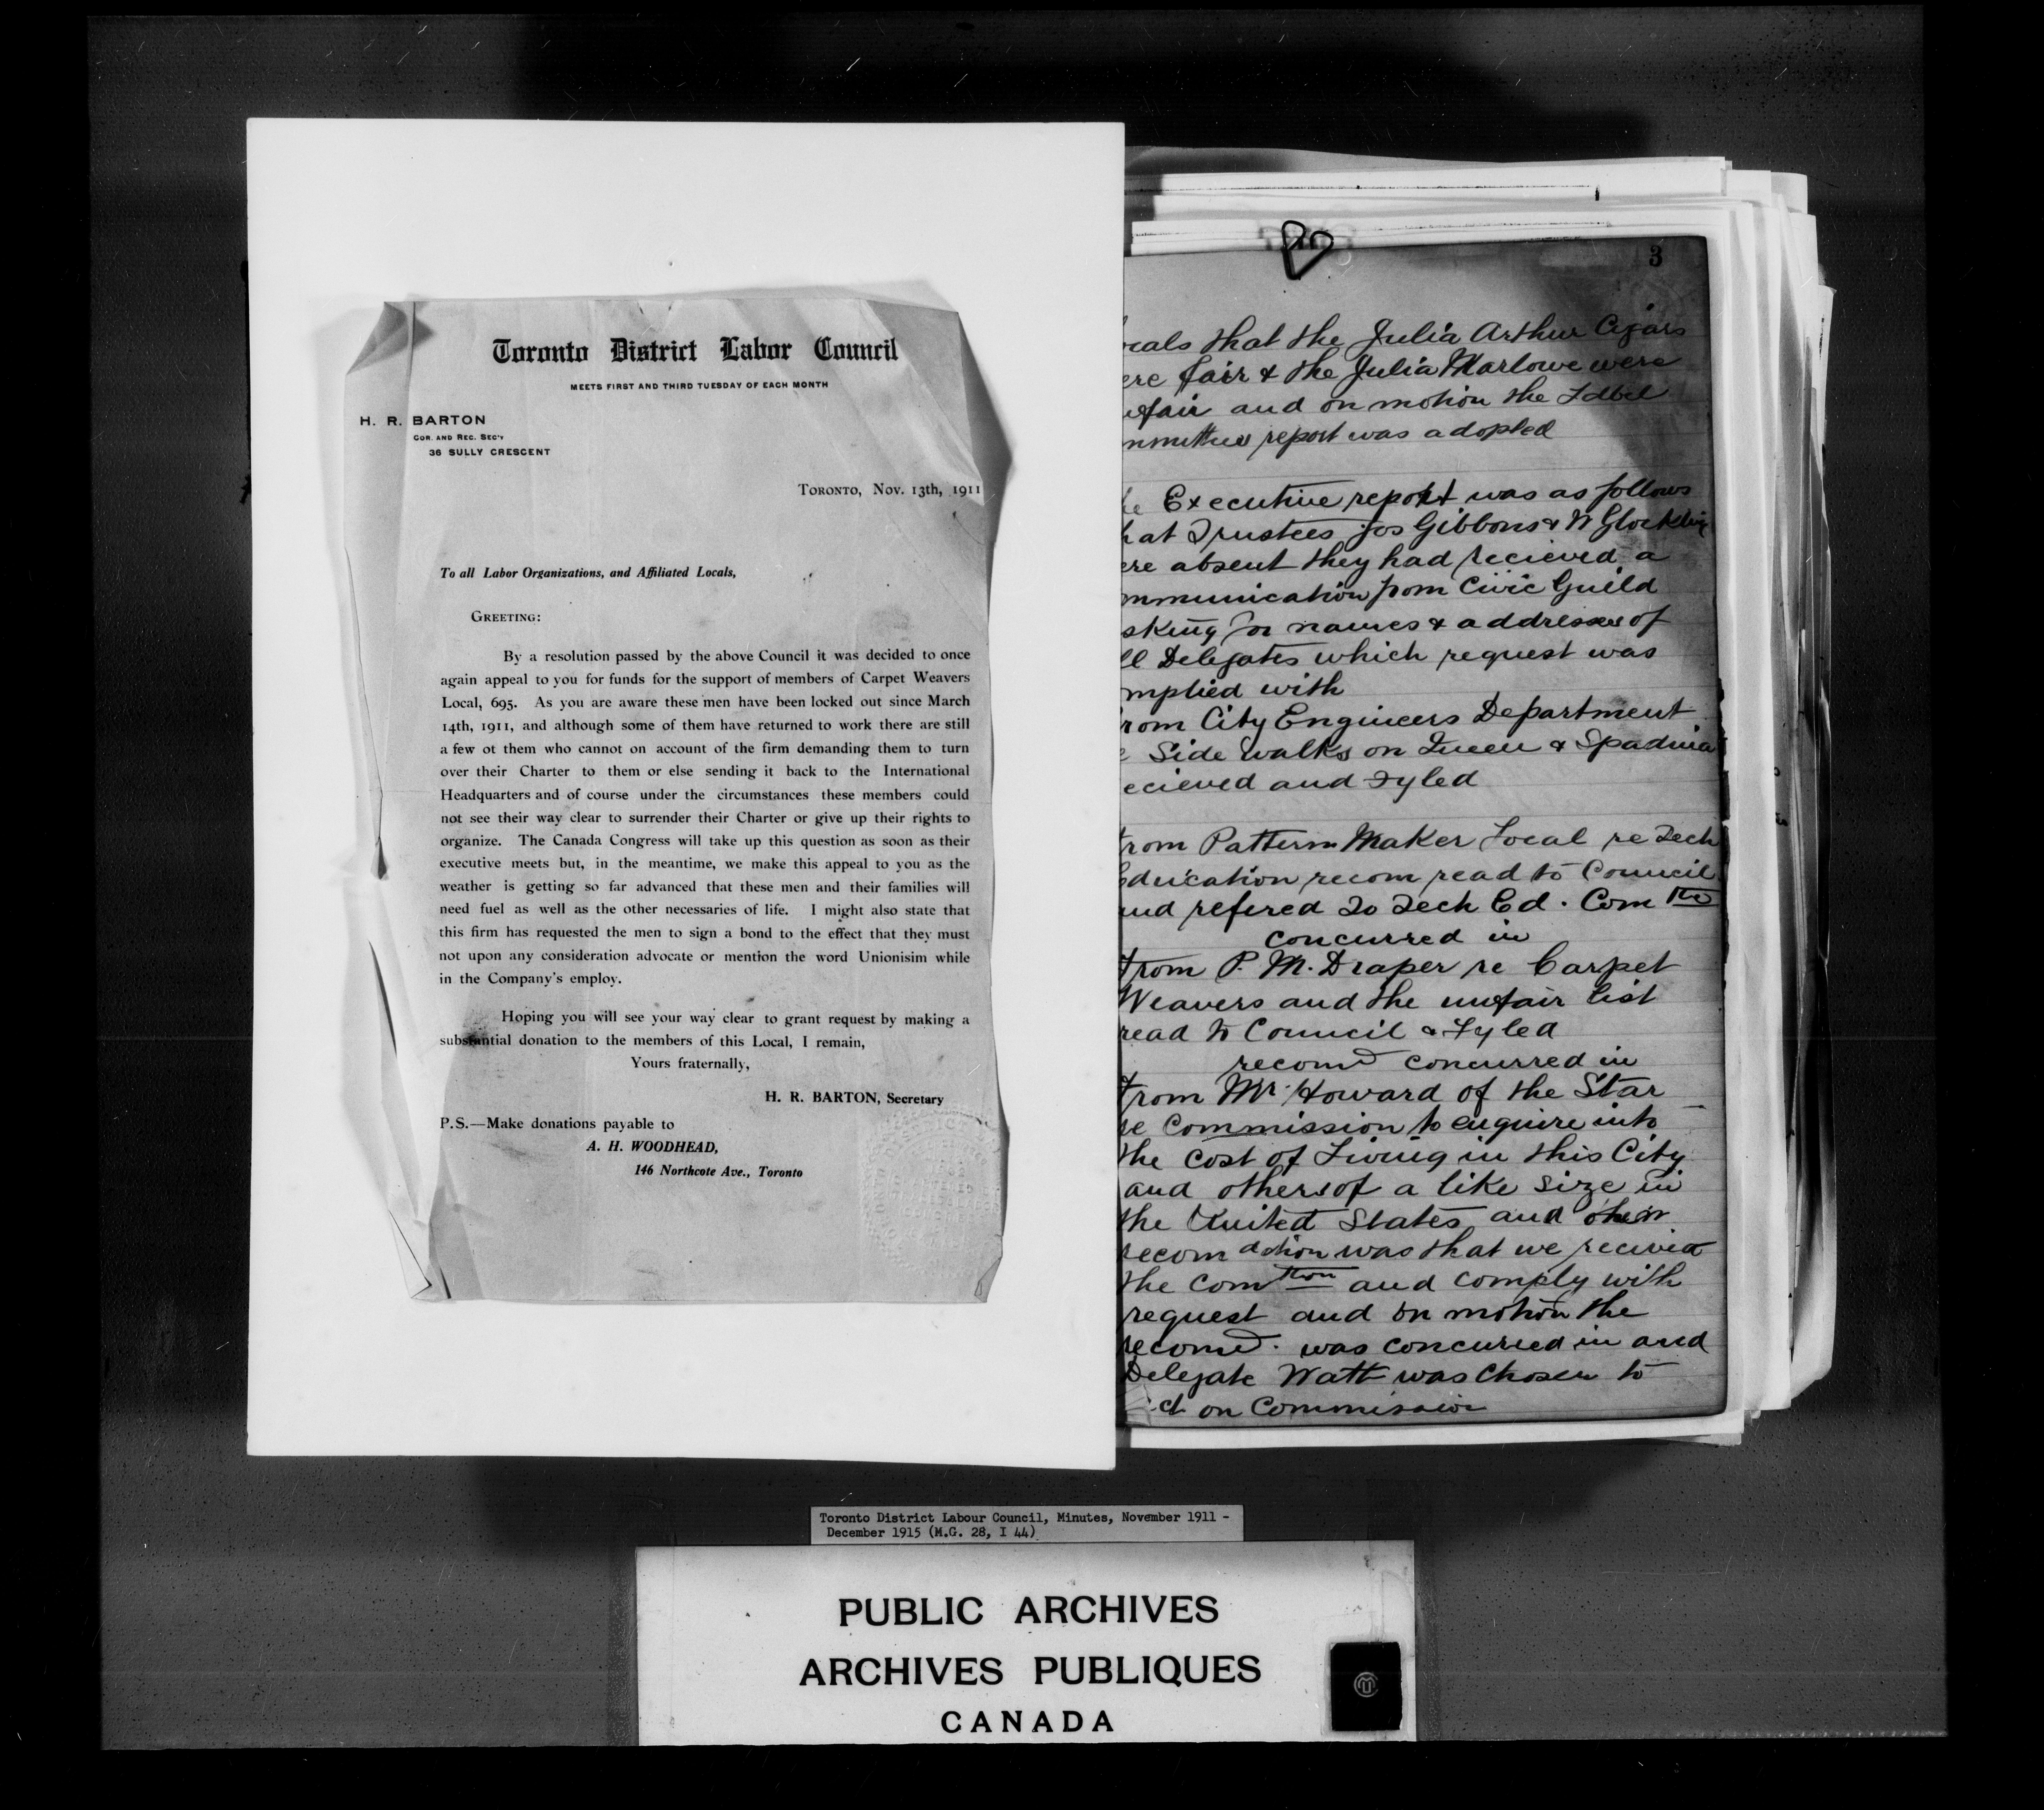 Toronto District Labor Council
MEETS FIRST AND THIRD TUESDAY OF EACH MONTH
H. R. BARTON
COR. AND REC. SEC'Y
36 SULLY CRESCENT
TORONTO, Nov. 13th, 1911
To all Labor Organizations, and Affiliated Locals,
GREETING:
By a resolution passed by the above Council it was decided to once
again appeal to you for funds for the support of members of Carpet Weavers
Local, 695. As you are aware these men have been locked out since March
14th, 1911, and although some of them have returned to work there are still
a few ot them who cannot on account of the firm demanding them to turn
over their Charter to them or else sending it back to the International
Headquarters and of course under the circumstances these members could
not see their way clear to surrender their Charter or give up their rights to
organize. The Canada Congress will take up this question as soon as their
executive meets but, in the meantime, we make this appeal to you as the
weather is getting so far advanced that these men and their families will
need fuel as well as the other necessaries of life. I might also state that
this firm has requested the men to sign a bond to the effect that they must
not upon any consideration advocate or mention the word Unionisim while
in the Company's employ.
Hoping you will see your way clear to grant request by making a
substantial donation to the members of this Local, I remain,
Yours fraternally,
H. R. BARTON, Secretary
P.S.—Make donations payable to
A. H. WOODHEAD,
146 Northcote Ave., Toronto
3
cals that the Julia Arthur Cigars
ere fair & the Julia Marlowe were
nfair and on motion the Label
ommittees report was adopted
he Executive report was as follows
hat Trustees Jos Gibbons & W Glockling
ere absent they had recieved a
mmunication from Civic Guild
sking for names & addresses of
ll Delegates which request was
omplied with
rom City Engineers Department
e Side Walks on Queen & Spadina
ecieved and Fyled
from Pattern Maker Local re Tech
Education recom read to Council
and refered to Tech Ed. Comtte
concurred in
from P. M. Draper re Carpet
Weavers and the unfair list
read to Council & Fyled
recomd concurred in
from Mr Howard of the Star
re Commission to enquire into
the Cost of Living in this City
and others of a like size in
the United States and their
recomdation was that we recieved
the Comtion and comply with
request and on motion the
recomd. was concurred in and
Delegate Watt was chosen to
act on Commission
Toronto District Labour Council, Minutes, November 1911 -
December 1915 (M.G. 28, I 44)
PUBLIC ARCHIVES
ARCHIVES PUBLIQUES
CANADA